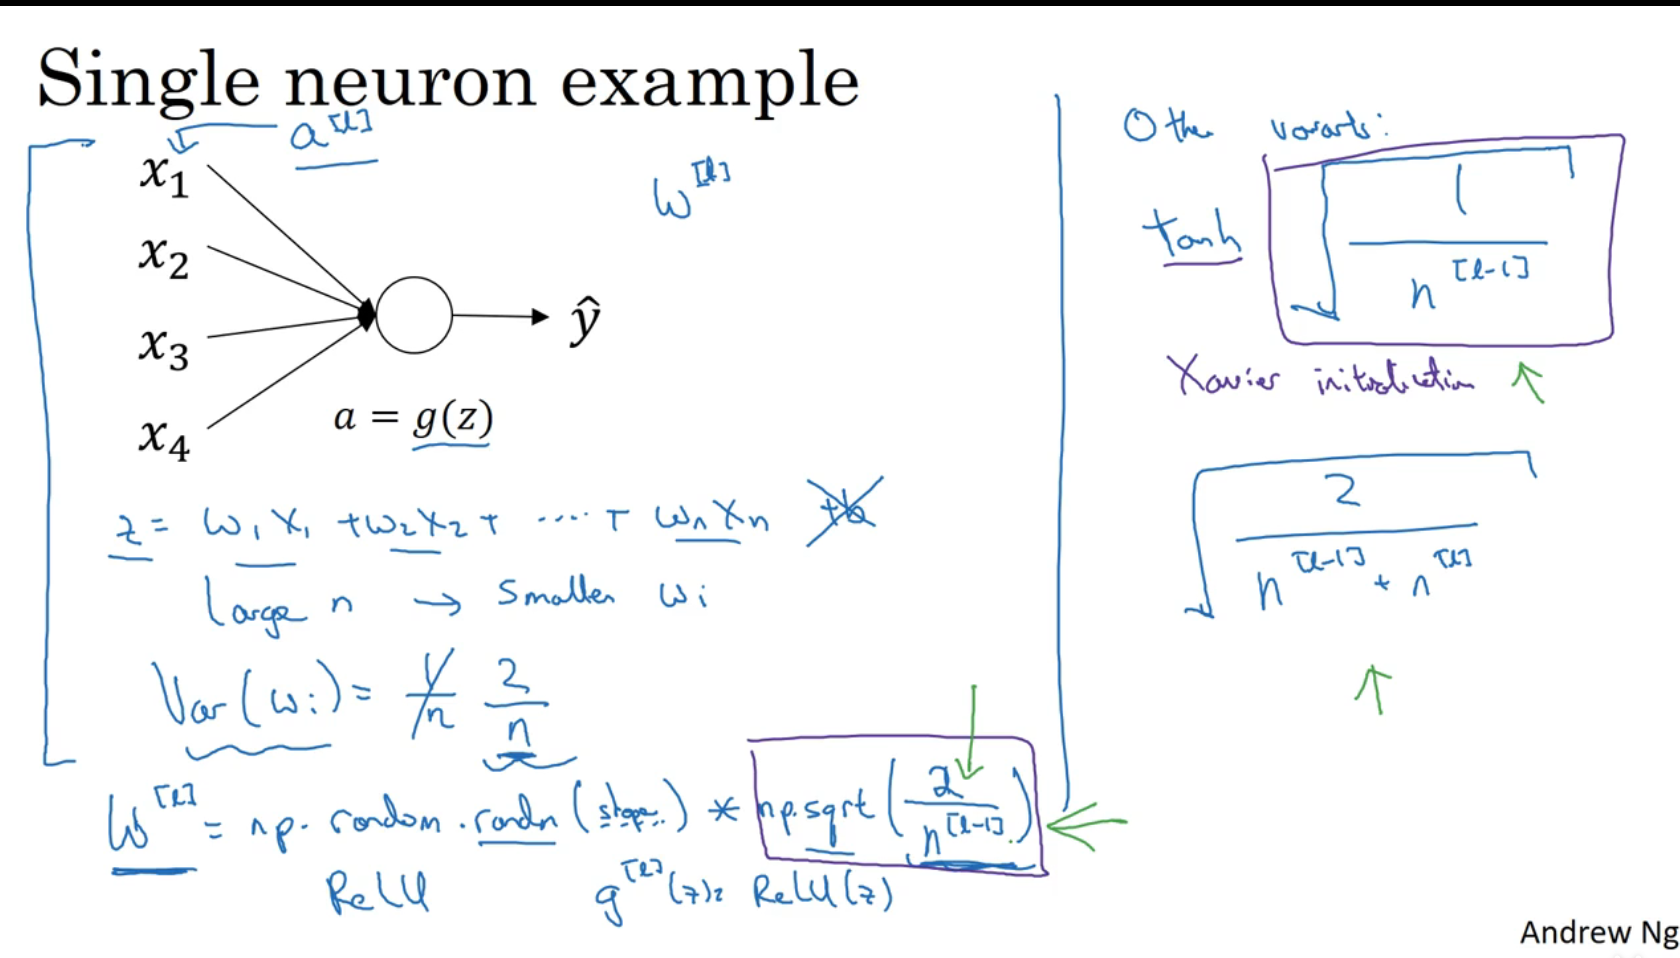 Single neuron example
a^[l]
x₁
x₂
x₃
x₄
ŷ
a = g(z)
w^[l]
z = w₁x₁ + w₂x₂ + ..... + wₙxₙ +b
Large n → Smaller wᵢ
Var(wᵢ) = 1/n 2/n
W^[l] = np.random.randn(shape) * np.sqrt(2/n^[l-1])
ReLU g^[l](z) = ReLU(z)
Other variants:
tanh √(1/n^[l-1])
Xavier initialization
√(2/(n^[l-1] + n^[l]))
Andrew Ng